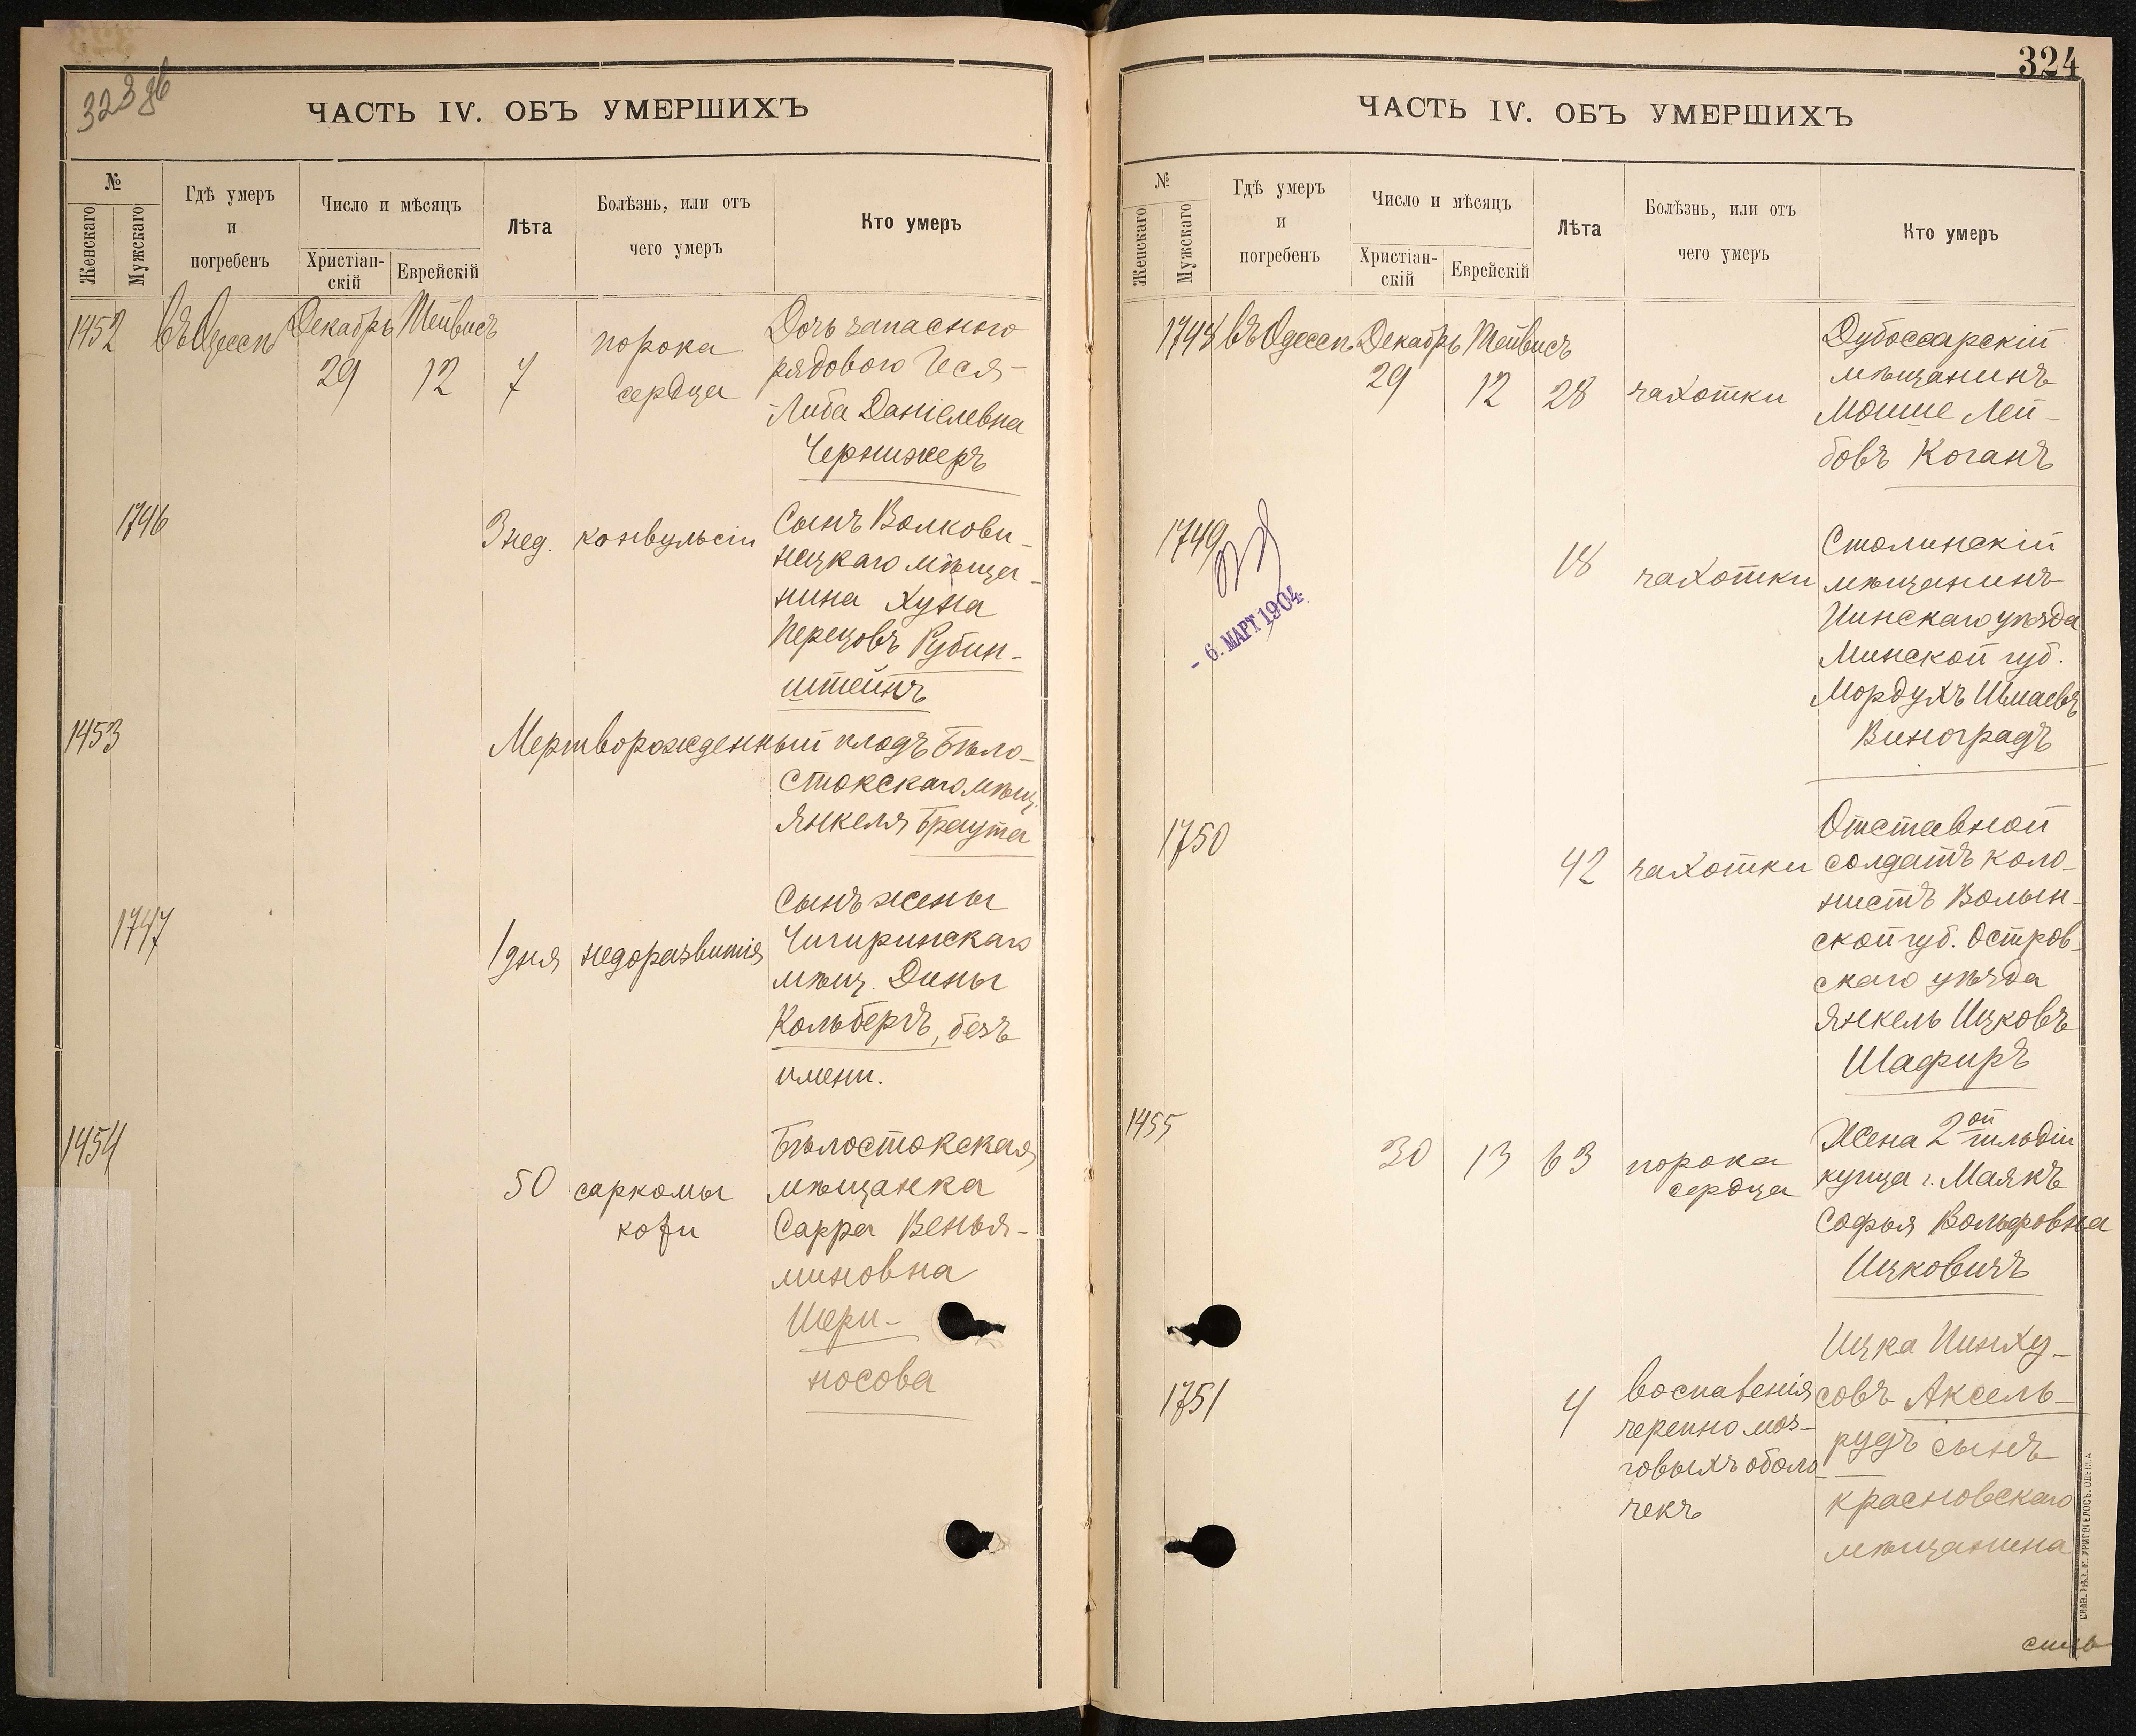 323 об
ЧАСТЬ IV. ОБЪ УМЕРШИХЪ
№
Женскаго
Мужскаго
Гдѣ умеръ
и
погребенъ
Число и мѣсяцъ
Христіан-
скій
Еврейскій
Лѣта
Болѣзнь, или отъ
чего умеръ
Кто умеръ
1452 въ Одессѣ Декабрь Тейвисъ
29 12 7
порока
сердца
Дочь запаснаго
рядового Чеся-
Либа Даніелевна
Чернижеръ
1746
3 нед. конвульсіи
Сынъ Волкови-
нецкаго мѣща-
нина Хуна
Перецовъ Рубин-
штейнъ
1453
Мертворожденный плодъ Бѣло-
стокскаго мѣщ.
Янкеля Браута
1747
1 дня недоразвитія
Сынъ жены
Чигиринскаго
мѣщ. Дины
Кольбергъ, безъ
имени.
1454
50 саркомы
кожи
Бѣлостокская
мѣщанка
Сарра Венья-
миновна
Шери-
носова
324
ЧАСТЬ IV. ОБЪ УМЕРШИХЪ
№
Женскаго
Мужскаго
Гдѣ умеръ
и
погребенъ
Число и мѣсяцъ
Христіан-
скій
Еврейскій
Лѣта
Болѣзнь, или отъ
чего умеръ
Кто умеръ
1748 въ Одессѣ Декабрь Тейвисъ
29 12 28 чахотки
Дубоссарскій
мѣщанинъ
Мошие Лей-
бовъ Коганъ
1749
- 6. МАРТ 1904
18 чахотки
Столинскій
мѣщанинъ
Пинскаго уѣзда
Минской губ.
Мордухъ Шмаевъ
Виноградъ
1750
42 чахотки
Отставной
солдатъ коло-
нистъ Волын-
ской губ. Остров-
скаго уѣзда
Янкель Ицковъ
Шафиръ
1455
30 13 63 порока
сердца
Жена 2ой гильдіи
купца г. Маякъ
Софья Вольфовна
Ицковичъ
1751
4 воспаленія
черепно моз-
говыхъ оболо-
чекъ
Ицка Пинху-
совъ Аксель-
рудъ сынъ
красновскаго
мѣщанина